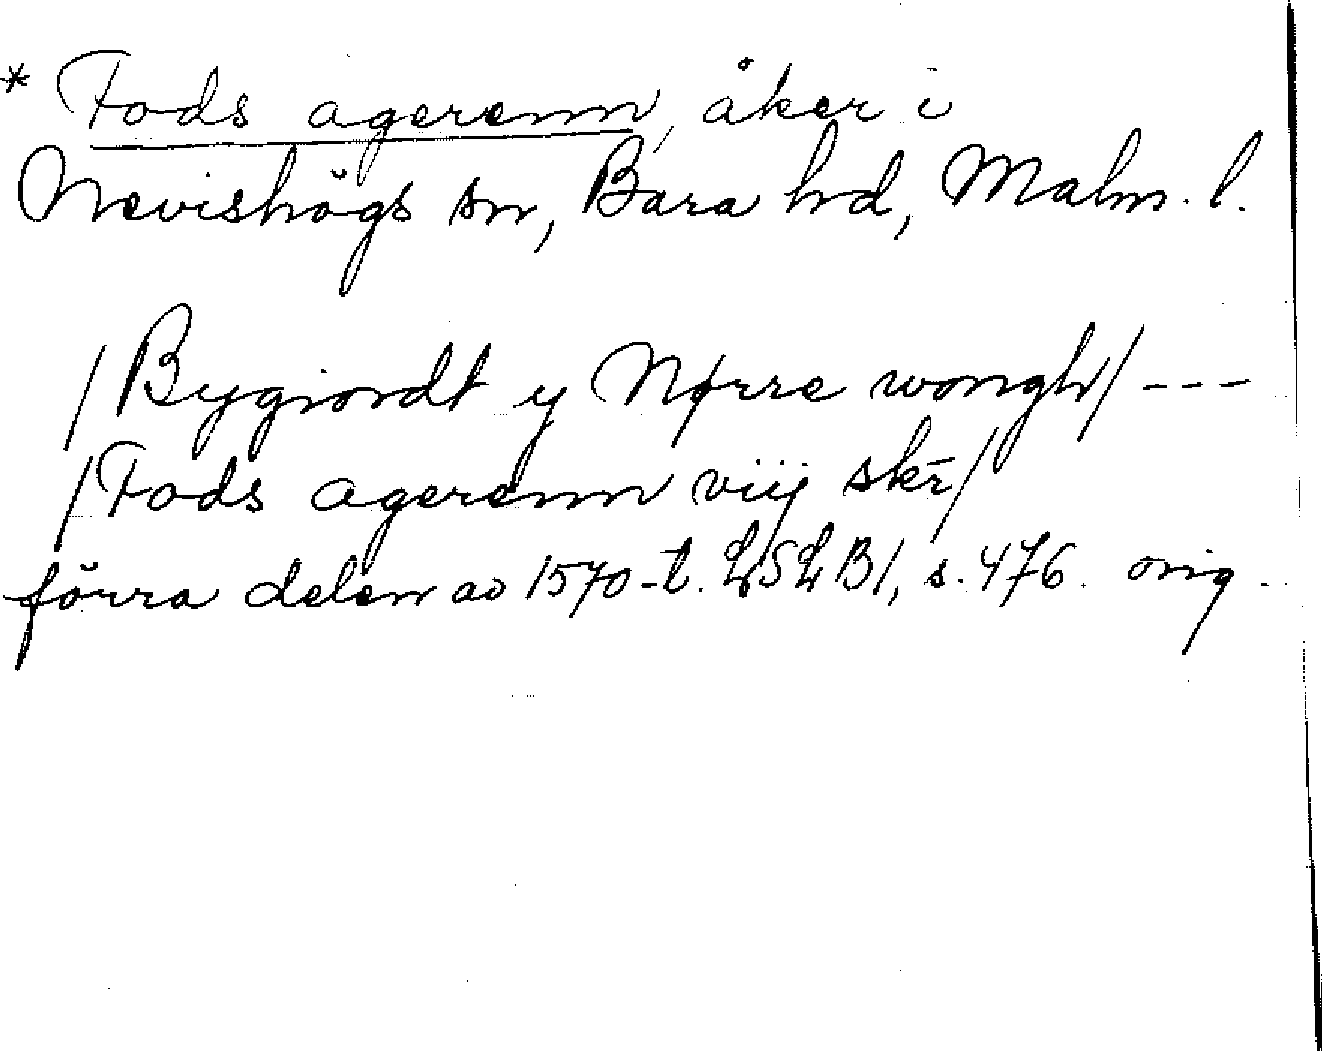 * Fods agerenn, åker i
Nevishögs sn, Bara hd, Malm. l.
/Bygiordt y Nørre wongh/ ---
/Fods agerenn viij skr̄/
förra delen av 1570-t. LSLB1, s. 476. orig.